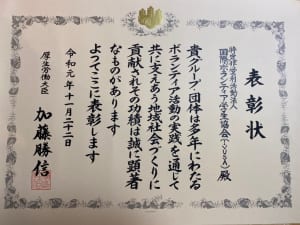 表彰状
特定非営利活動法人
国際ボランティア学生協会（IVUSA）殿
貴グループ団体は多年にわたる
ボランティア活動の実践を通じて
共に支えあう地域社会づくりに
貢献されその功績は誠に顕著
なものがあります
よってここに表彰します
令和元年十一月二十二日
厚生労働大臣 加藤勝信